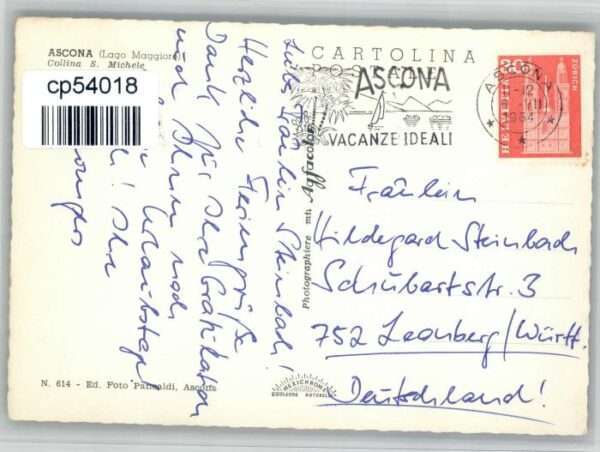 ASCONA (Lago Maggiore)
Collina S. Michele
cp54018
CARTOLINA
POSTALE
ASCONA
VACANZE IDEALI
ASCONA
11-12
1964
HELVETIA
20
ZÜRICH
Liebe Fräulein Steinbach!
Herzliche Feriengrüße
Dank für Ihre Gratulation
und Ihnen noch
Urlaubstage
Ihr
Photographiere mit Agfacolor
Fräulein
Hildegard Steinbach
Schubartstr. 3
752 Leonberg/Württ.
Deutschland!
N. 614 - Ed. Foto Pancaldi, Ascona
MEXICHROME